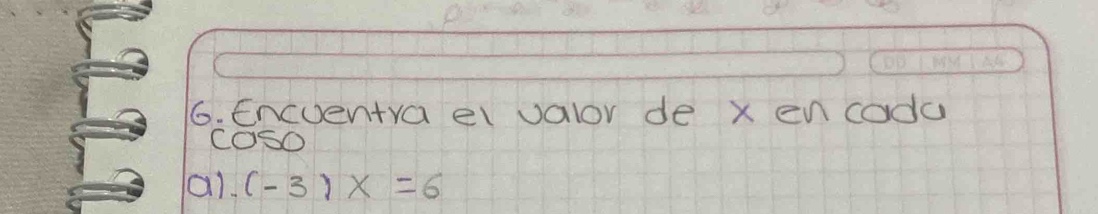 DD MM AA
6. Encuentra el valor de x en cada
caso
a). (-3) x = 6